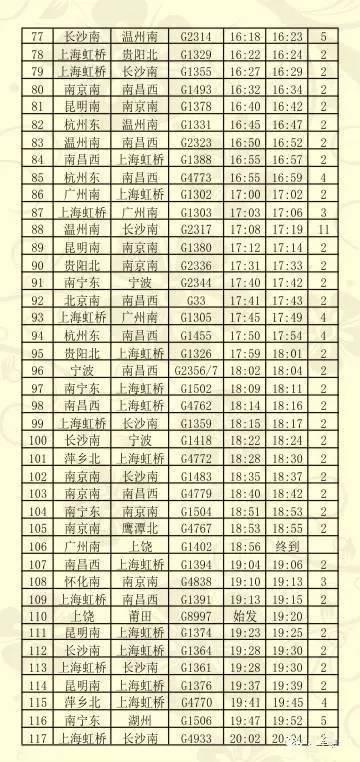 77 长沙南 温州南 G2314 16:18 16:23 5
78 上海虹桥 贵阳北 G1329 16:22 16:24 2
79 上海虹桥 长沙南 G1355 16:27 16:29 2
80 南京南 南昌西 G1493 16:32 16:34 2
81 昆明南 南京南 G1378 16:40 16:42 2
82 杭州东 温州南 G1331 16:45 16:47 2
83 温州南 南昌西 G2323 16:50 16:52 2
84 南昌西 上海虹桥 G1388 16:55 16:57 2
85 杭州东 南昌西 G4773 16:55 16:59 4
86 广州南 上海虹桥 G1302 17:00 17:02 2
87 上海虹桥 广州南 G1303 17:03 17:06 3
88 温州南 长沙南 G2317 17:08 17:19 11
89 昆明南 南京南 G1380 17:12 17:14 2
90 贵阳北 南京南 G2336 17:31 17:33 2
91 南宁东 宁波 G2344 17:40 17:42 2
92 北京南 南昌西 G33 17:41 17:43 2
93 上海虹桥 广州南 G1305 17:45 17:49 4
94 杭州东 南昌西 G1455 17:50 17:54 4
95 贵阳北 上海虹桥 G1326 17:59 18:01 2
96 宁波 南昌西 G2356/7 18:02 18:04 2
97 南宁东 上海虹桥 G1502 18:09 18:11 2
98 南昌西 上海虹桥 G4762 18:14 18:16 2
99 上海虹桥 长沙南 G1359 18:15 18:17 2
100 长沙南 宁波 G1418 18:22 18:24 2
101 萍乡北 上海虹桥 G4772 18:28 18:30 2
102 南京南 长沙南 G1483 18:35 18:37 2
103 南京南 南昌西 G4779 18:40 18:42 2
104 南宁东 南京南 G1504 18:51 18:53 2
105 南京南 鹰潭北 G4767 18:53 18:55 2
106 广州南 上饶 G1402 18:56 终到
107 南昌西 上海虹桥 G1394 19:04 19:06 2
108 怀化南 南京南 G4838 19:10 19:13 3
109 上海虹桥 南昌西 G1391 19:13 19:15 2
110 上饶 莆田 G8997 始发 19:20
111 昆明南 上海虹桥 G1374 19:23 19:25 2
112 长沙南 上海虹桥 G1364 19:28 19:30 2
113 上海虹桥 长沙南 G1361 19:28 19:30 2
114 昆明南 上海虹桥 G1376 19:37 19:39 2
115 萍乡北 上海虹桥 G4770 19:41 19:45 4
116 南宁东 湖州 G1506 19:47 19:52 5
117 上海虹桥 长沙南 G4933 20:02